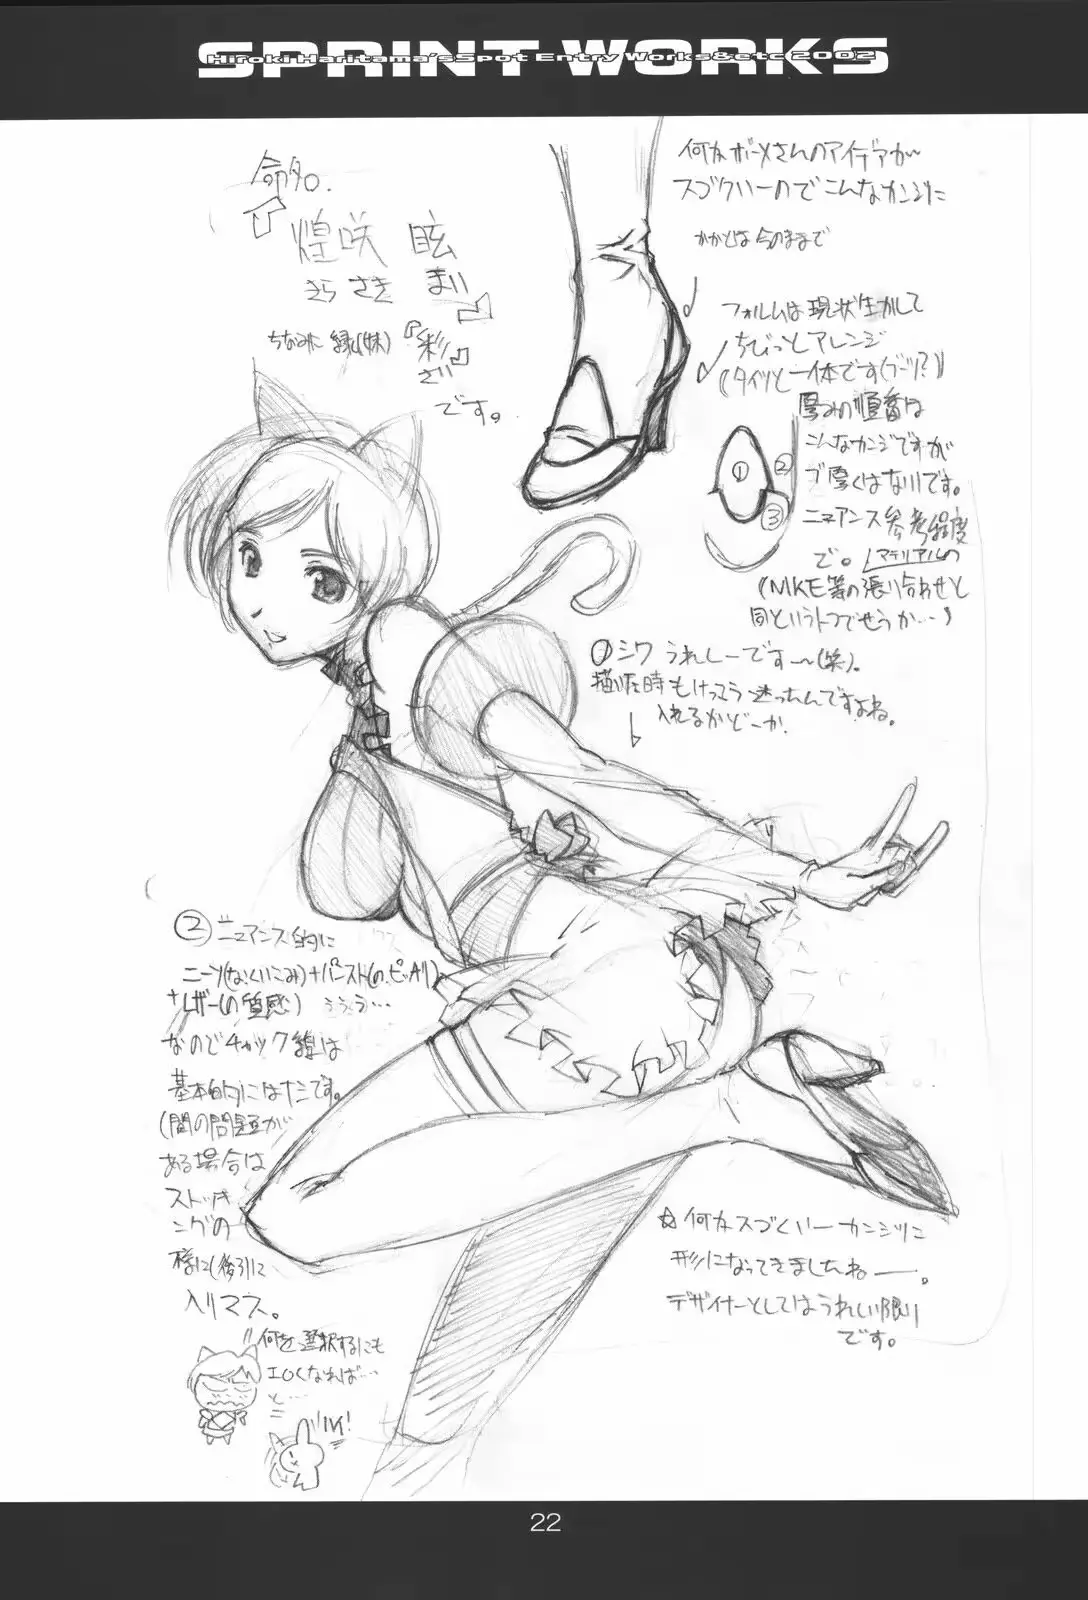 SPRINT WORKS
Hiroki Haritama's Spot Entry Works&etc 2002
命名。
煌咲 眩
きらさき まい
ちなみに 縁(妹)
『彩』
さい
です。
何かボーメさんのアイデアが
スゴクいーのでこんなカンジに
かかとは今のままで
フォルムは現状生かして
ちびっとアレンジ
(タイツと一体です(ブーツ?))
厚みの順番は
こんなカンジですが
ブ厚くはないです。
ニュアンス参考程度
で。 マテリアルの
(NIKE等の張り合わせと
同というトコでせうか…)
① ② ③
①シワ うれしーです〜(笑)。
描いた時もけっこう迷ったんですよね。
入れるかどーか。
②ニュアンス的に
ニーソ(なくいこみ)+パンスト(の、ピッチリ)
+レザー(の質感) ううう…
なのでチャック線は
基本的にはナシです。
(間の問題が
ある場合は
ストッキ
ングの
様に(後ろ)に
入りマス。
"何を選択するにも
エロくなれば…
と…
ハイ!
☆何かスゴくいーカンジに
形になってきましたねー。
デザイナーとしてはうれしい限り
です。
22